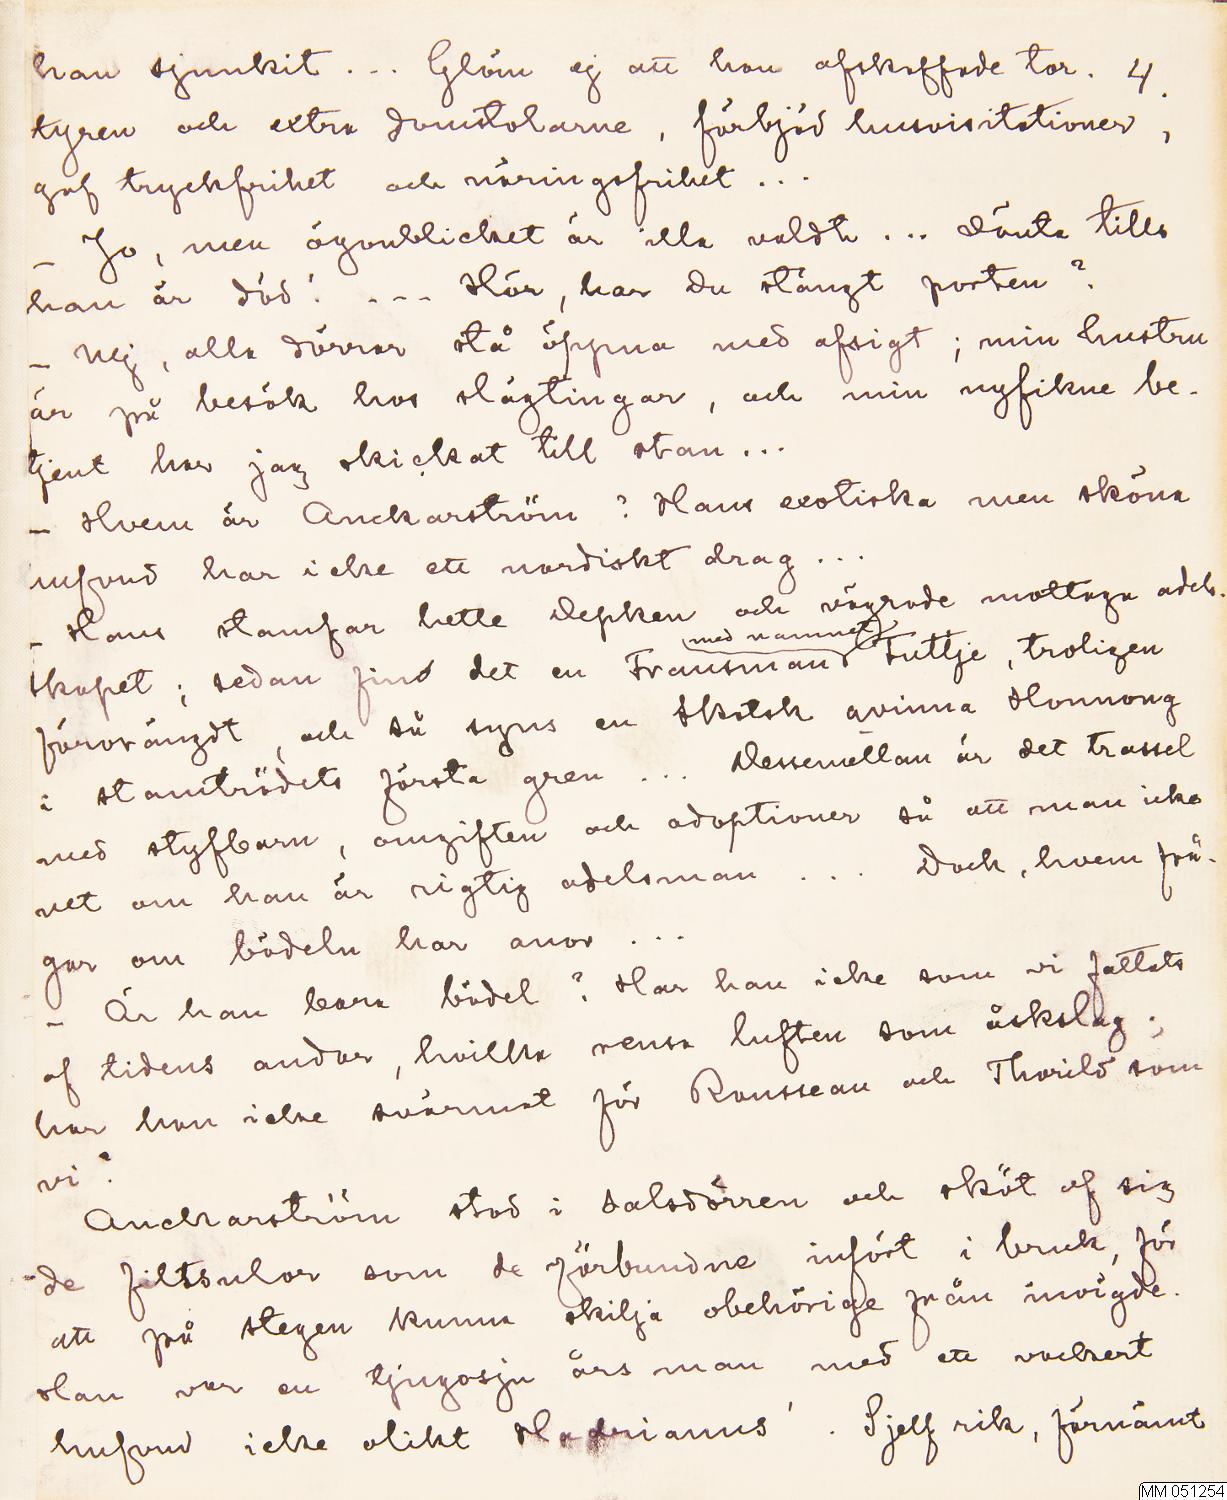 han sjunkit ... Glöm ej att han afskaffade tor- 4.
tyren och extra domstolarne, förbjöd husvisitationer,
gaf tryckfrihet och näringsfrihet ...
– Jo, men ögonblicket är illa valdt ... Vänta tills
han är död! ... Hör, har Du stängt porten?
– Nej, alla dörrar stå öppna med afsigt; min hustru
är på besök hos slägtingar, och min nyfikne be-
tjent har jag skickat till stan ...
– Hvem är Anckarström? Hans exotiska men sköna
hufvud har icke ett nordiskt drag ...
– Hans stamfar hette Depken och vägrade mottaga adels-
med namnet
skapet; sedan fins det en Fransman Suttje, troligen
förvrängdt, och så syns en skotsk qvinna Honnong
i stamträdets första gren ... Dessemellan är det trassel
med styfbarn, omgiften och adoptioner så att man icke
vet om han är rigtig adelsman ... Dock, hvem frå-
gar om bödeln har anor ...
– Är han bara bödel? Har han icke som vi fattats
af tidens andar, hvilka rensa luften som åskslag;
har han icke svärmat för Rousseau och Thorild som
vi?
Anckarström stod i salsdörren och sköt af sig
de filtsulor som de förbundne infört i bruk, för
att på stegen kunna skilja obehörige från invigde.
Han var en tjugosju års man med ett vackert
hufvud icke olikt Hadrianus'. Sjelf rik, förnämt
MM 051254